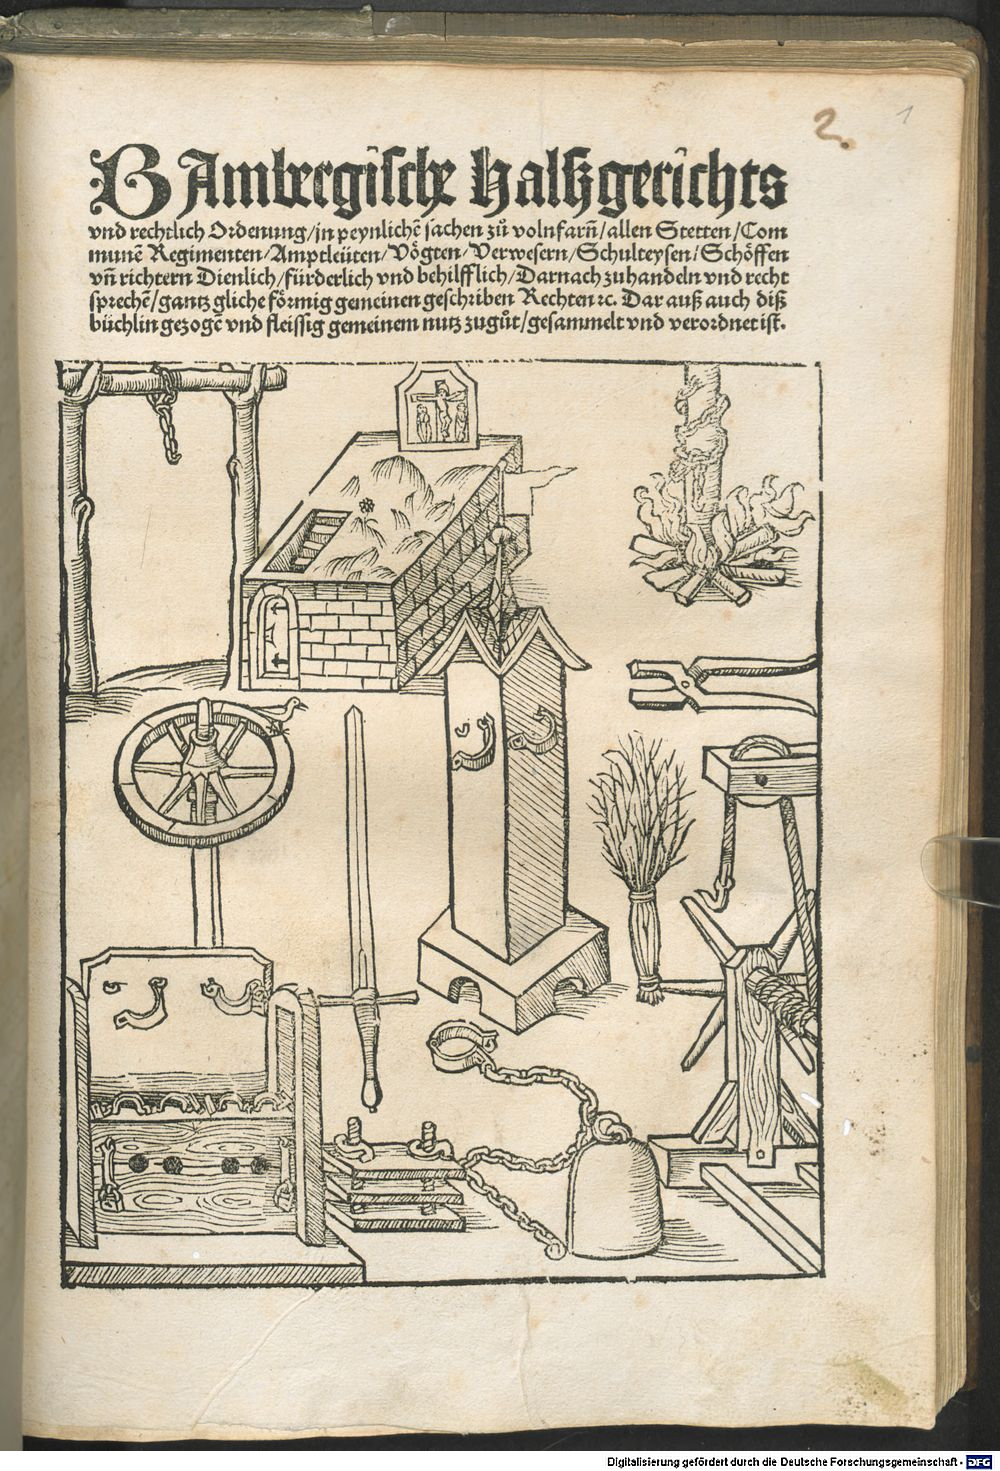 2.
1
BAmbergische Halszgerichts
vnd rechtlich Ordenung/in peynlichē sachen zů volnfarn̄/allen Stetten/Com
munē Regimenten/Amptleüten/Vögten/Verwesern/Schulteysen/Schöffen
vn̄ richtern Dienlich/fürderlich vnd behilfflich/Darnach zuhandeln vnd recht
sprechē/gantz gliche förmig gemeinen geschriben Rechten ꝛc. Dar auß auch diß
büchlin gezogē vnd fleissig gemeinem nutz zugůt/gesammelt vnd verordnet ist.
Digitalisierung gefördert durch die Deutsche Forschungsgemeinschaft - DFG